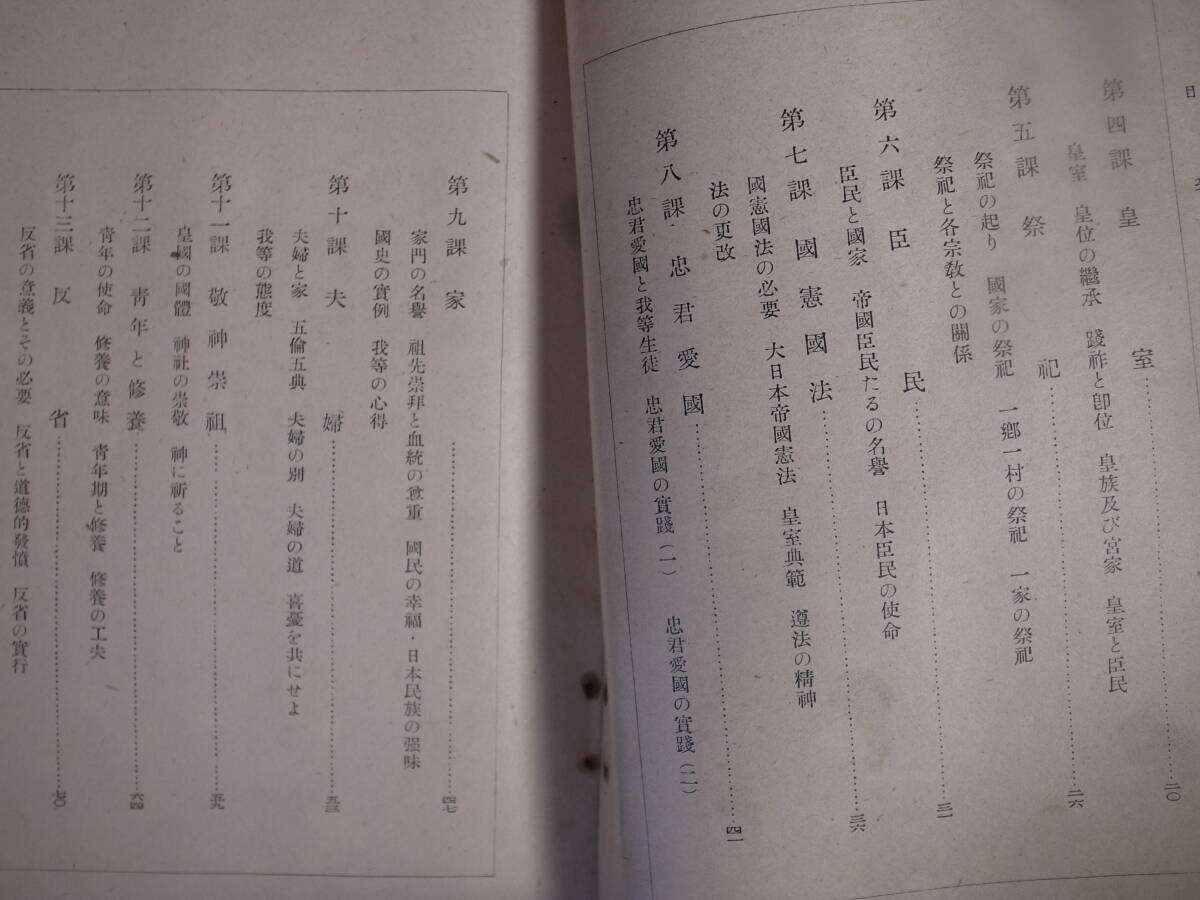 目
第四課 皇室……二〇
皇室 皇位の繼承 踐祚と卽位 皇族及び宮家 皇室と臣民
第五課 祭祀……二六
祭祀の起り 國家の祭祀 一鄕一村の祭祀 一家の祭祀
祭祀と各宗敎との關係
第六課 臣民……三一
臣民と國家 帝國臣民たるの名譽 日本臣民の使命
第七課 國憲國法……三六
國憲國法の必要 大日本帝國憲法 皇室典範 遵法の精神
法の更改
第八課 忠君愛國……四一
忠君愛國と我等生徒 忠君愛國の實踐(一) 忠君愛國の實踐(二)
第九課 家……四七
家門の名譽 祖先崇拜と血統の尊重 國民の幸福・日本民族の强味
國史の實例 我等の心得
第十課 夫婦……五三
夫婦と家 五倫五典 夫婦の別 夫婦の道 喜憂を共にせよ
我等の態度
第十一課 敬神崇祖……五九
皇國の國體 神社の崇敬 神に祈ること
第十二課 靑年と修養……六四
靑年の使命 修養の意味 靑年期と修養 修養の工夫
第十三課 反省……七〇
反省の意義とその必要 反省と道德的發憤 反省の實行